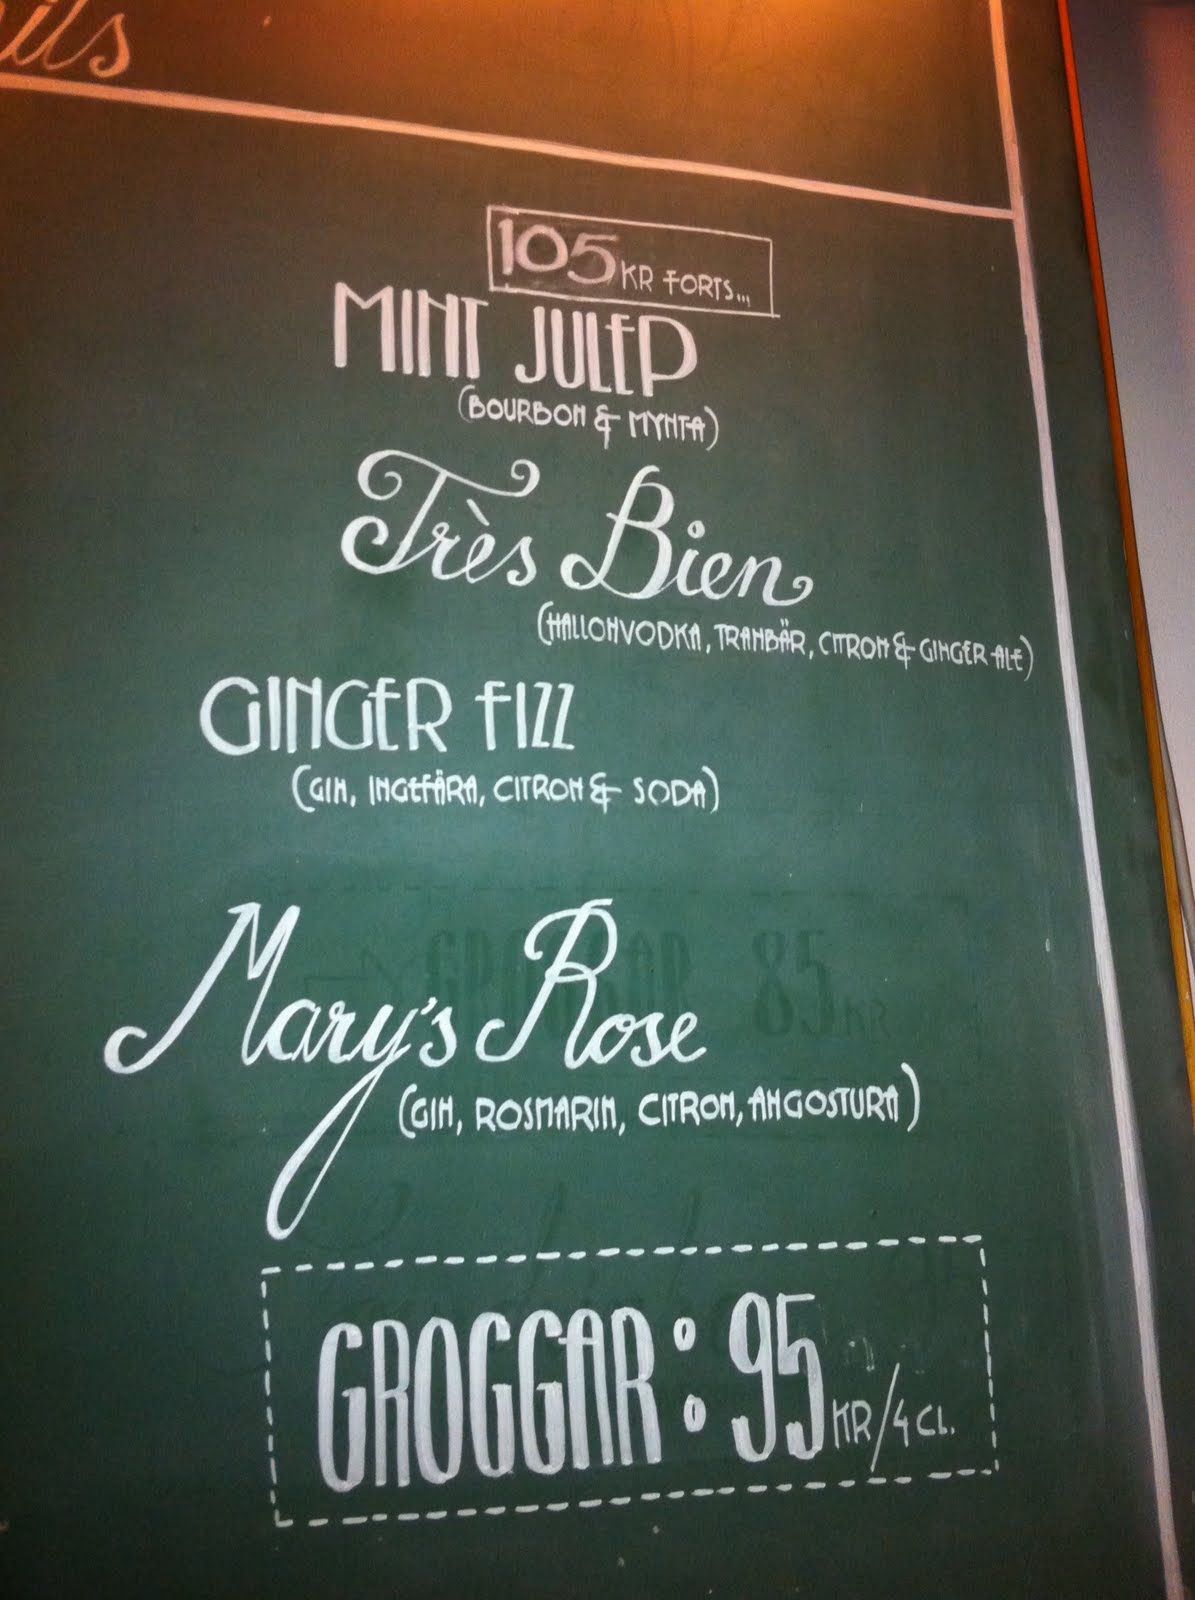 ils
105 KR FORTS...
MINT JULEP
(BOURBON & MYNTA)
Très Bien
(HALLONVODKA, TRANBÄR, CITRON & GINGER ALE)
GINGER FIZZ
(GIN, INGEFÄRA, CITRON & SODA)
GROGGAR 85 KR
Mary's Rose
(GIN, ROSMARIN, CITRON, ANGOSTURA)
GROGGAR: 95 KR/4 CL.